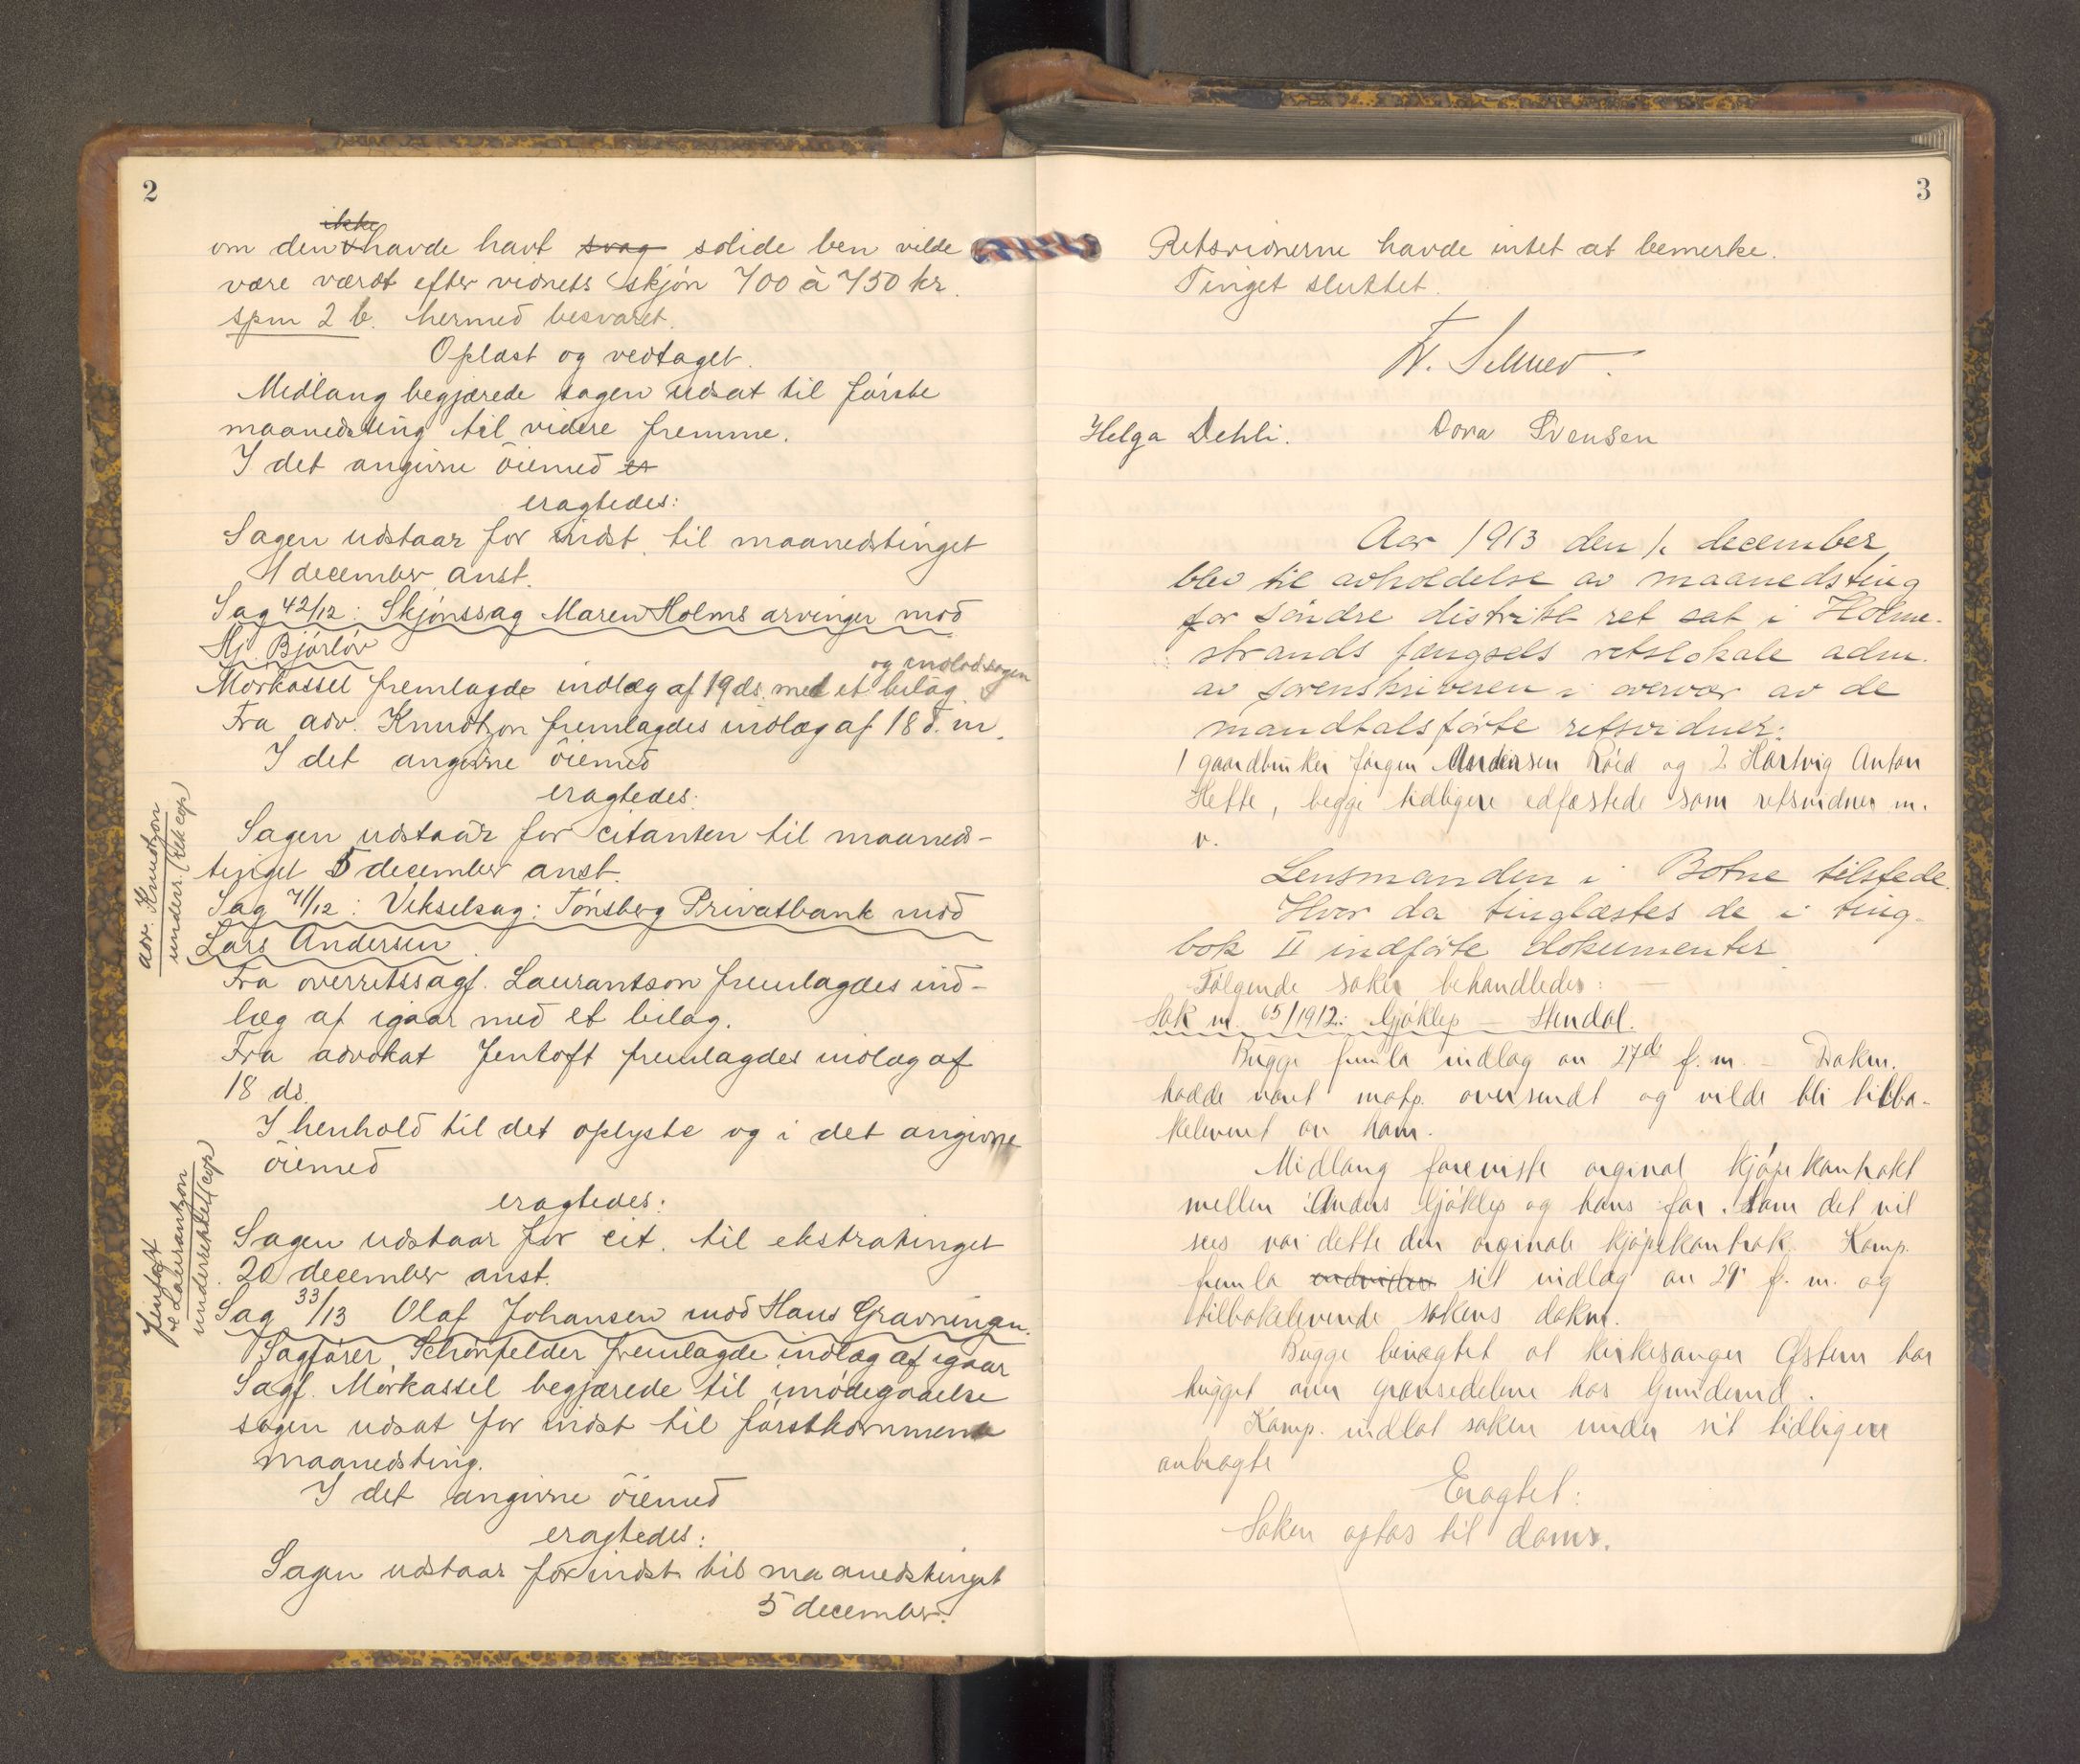 2
ikke
om den havde havt svag solide ben vilde
være værdt efter vidnets skjøn 700 à 750 kr.
spm 2 b. hermed besvaret.
Oplæst og vedtaget.
Midlang begjærede sagen udsat til første
maanedsting til videre fremme.
I det angivne öiemed er
eragtedes:
Sagen udstaar for indst. til maanedstinget
1 december anst.
Sag 42/12: Skjønssag Maren Holms arvinger mod
Hj. Bjørløv
og indlod sagen
Morkassel fremlagde indlæg af 19 ds. med et bilag
Fra adv. Knudtzon fremlagdes indlæg af 18 d. m.
I det angivne öiemed
eragtedes:
Sagen udstaar for citanten til maaneds-
tinget 5 december anst.
adv. Knudtzon
underr.
Sag 71/12: Vekselsag: Tønsberg Privatbank mod
Lars Andersen
Fra overretssagf. Laurantzon fremlagdes ind-
læg af igaar med et bilag.
Fra advokat Jentoft fremlagdes indlæg af
18 ds.
I henhold til det oplyste og i det angivne
öiemed
eragtedes:
Sagen udstaar for cit. til ekstratinget
20 december anst.
Jentoft
& Laurantzon
underrettet (cop)
Sag 33/13 Olaf Johansen mod Hans Gravningen.
Sagfører Schönfelder fremlagde indlæg af igaar
Sagf. Morkassel begjærede til imødegaaelse
sagen udsat for indst til førstkommende
maanedsting.
I det angivne öiemed
eragtedes:
Sagen udstaar for indst til maanedstinget
5 december.
3
Retsvidnerne havde intet at bemerke.
Tinget sluttet.
Helga Dehli. Dora Svensen
Aar 1913 den 1. december
blev til avholdelse av maanedsting
for söndre distrikt ret sat i Holme-
strands fængsels retslokale adm.
av sorenskriveren i overvær av de
mandtalsførte retsvidner:
1 gaardbruker Jørgen Andersen Røed og 2 Hartvig Anton
Hefte, begge tidligere edfæstede som retsvidner m.
v.
Lensmanden i Botne tilstede.
Hvor da tinglæstes de i ting-
bok II indførte dokumenter
Følgende saker behandledes:
Sak nr. 65/1912: Gjøklep - Stendal.
Bugge fremla indlæg av 27de f. m. - Dokm.
hadde været motp. oversendt og vilde bli tilba-
keleveret av ham.
Midlang foreviste orginal kjøpekontrakt
mellem Anders Gjøklep og hans far. Som det vil
sees var dette den orginale kjøpekontrak. Komp.
fremla sit indlæg av 29' f. m. og
tilbakeleverede sakens dokm.
Bugge benægtet at kirkesanger Østern har
hugget over grænsedelene hos
Komp. indlot saken under sit tidligere
anbragte
Eragtet:
Saken optas til doms.